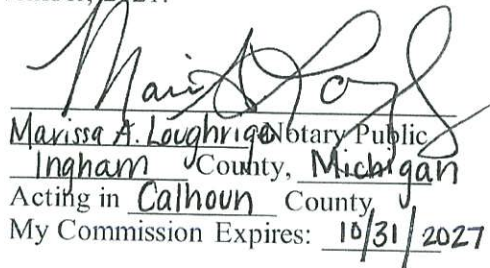 2021.
Marissa A. Loughrige Notary Public
Ingham County, Michigan
Acting in Calhoun County
My Commission Expires: 10/31/2027